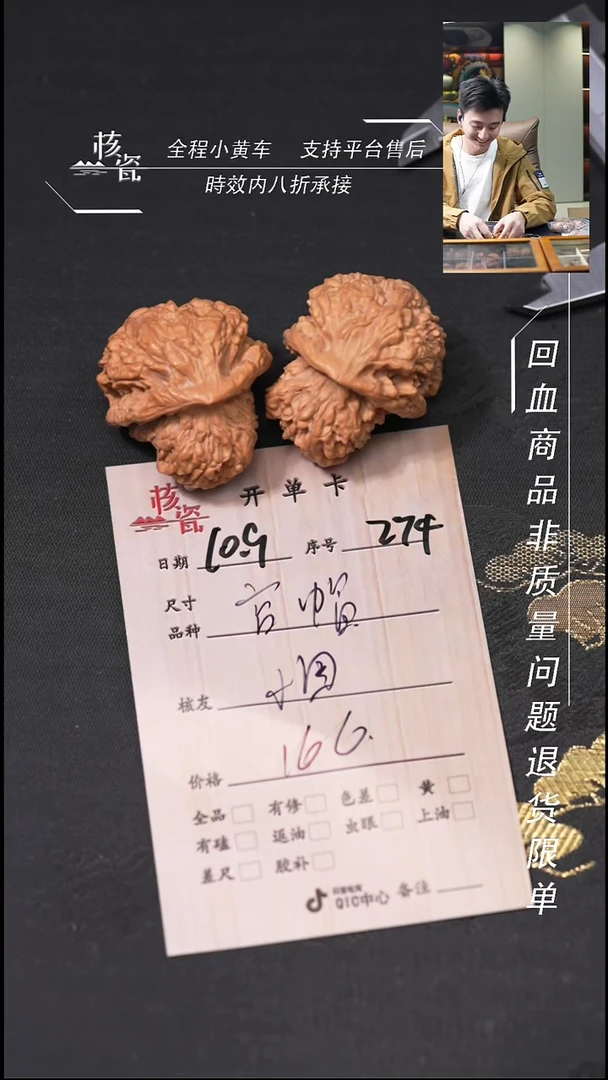 核瓷
全程小黄车 支持平台售后
時效内八折承接
回血商品非质量问题退货限单
核瓷
开单卡
日期 10.9 序号 274
尺寸
品种 官帽
核友
价格 166.
全品 有修 色差 黄
有磕 返油 虫眼 上油
差尺 胶补
抖音电商
QIC中心 备注